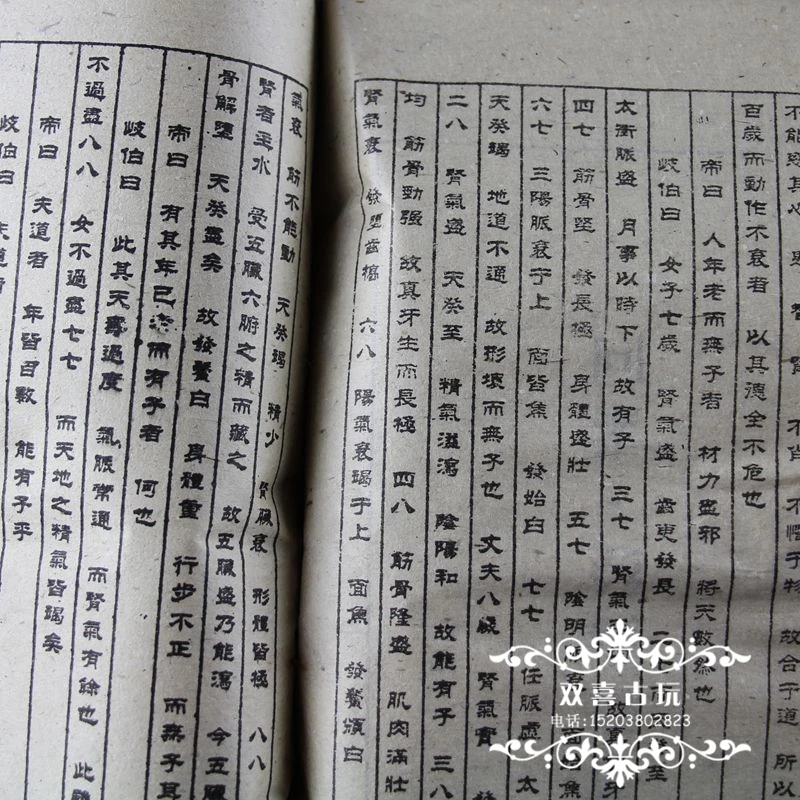 不能惑其心 愚 智 賢 不肖 不懼于物 故合于道 所以
百歲而動作不衰者 以其德全不危也
帝曰 人年老而無子者 材力盡邪 將天數然也
岐伯曰 女子七歲 腎氣盛 齒更發長 二七而 至
太衝脈盛 月事以時下 故有子 三七 腎氣 故真牙
四七 筋骨堅 發長極 身體盛壯 五七 陰明 面
六七 三陽脈衰于上 面皆焦 發始白 七七 任脈虛 太
天癸竭 地道不通 故形壞而無子也 丈夫八歲 腎氣實
二八 腎氣盛 天癸至 精氣溢瀉 陰陽和 故能有子 三八
均 筋骨勁强 故真牙生而長極 四八 筋骨隆盛 肌肉滿壯
腎氣衰 發墮齒槁 六八 陽氣衰竭于上 面焦 發鬢頒白
氣衰 筋不能動 天癸竭 精少 腎臟衰 形體皆極 八八
腎者主水 受五臟六腑之精而藏之 故五臟盛乃能瀉 今五臟
骨解墮 天癸盡矣 故發鬢白 身體重 行步不正 而無子耳
帝曰 有其年已老而有子者 何也
岐伯曰 此其天壽過度 氣脈常通 而腎氣有餘也 此雖
不過盡八八 女不過盡七七 而天地之精氣皆竭矣
帝曰 夫道者 年皆百數 能有子乎
岐伯曰 夫道者
双喜古玩
电话:15203802823